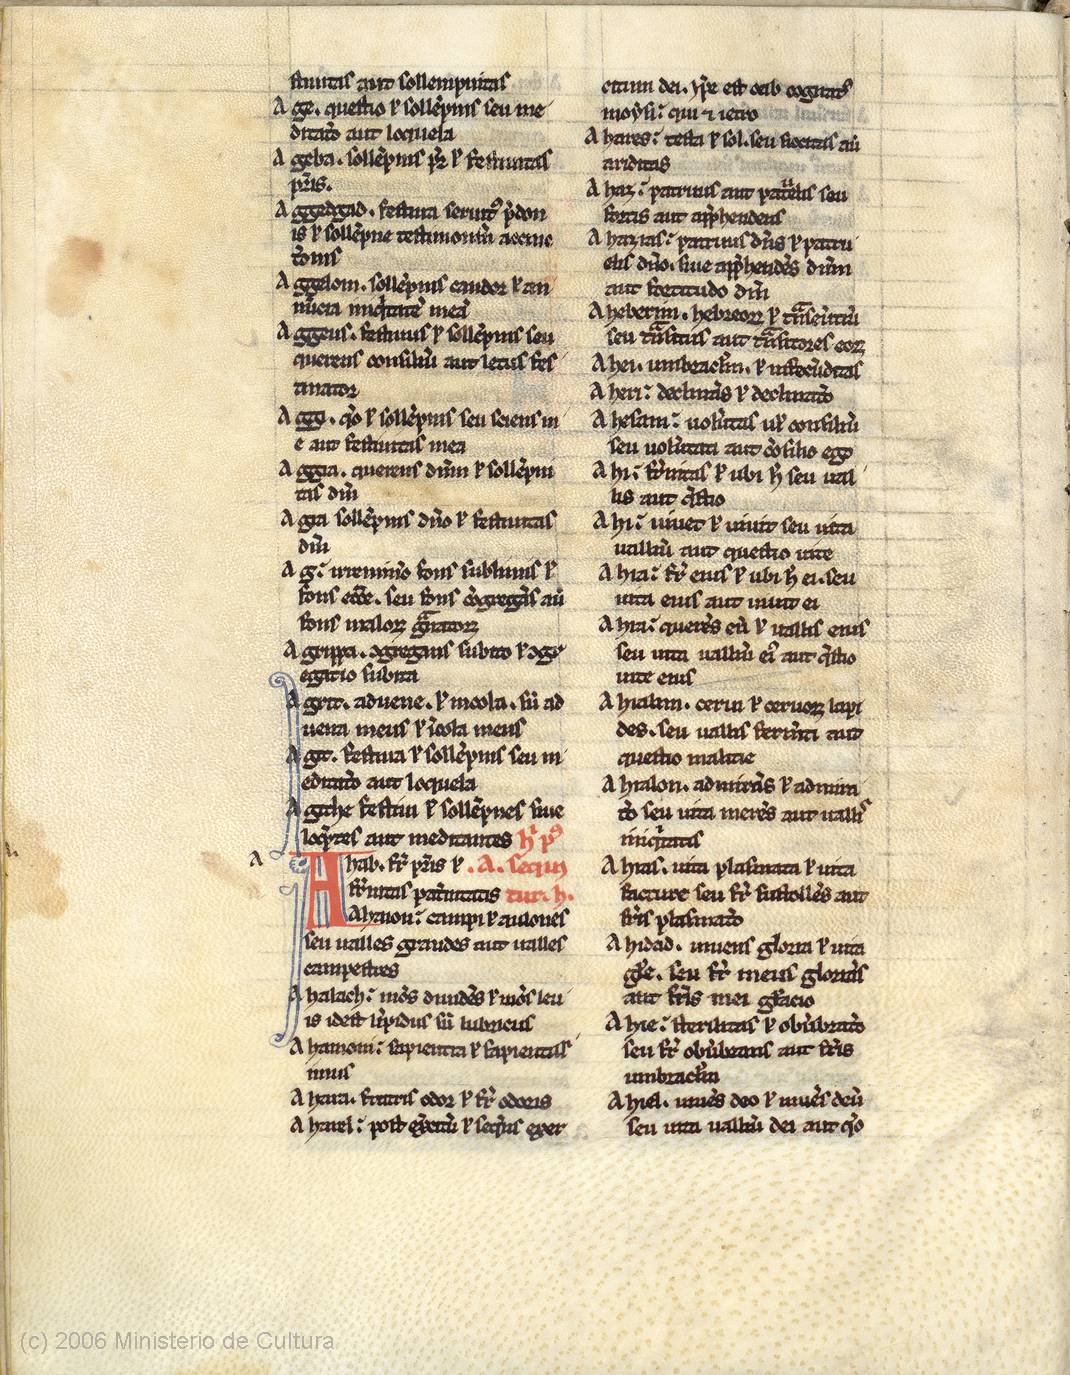 stiuitas aut sollempnitas
A ge. questio ł sollēpnis seu me
ditatō aut loquela
A geba. sollēpnis pr̄ ł festiuitas
pr̄is.
A ggedgad. festiua
is ł sollēpne testimoniū accinc
tōnis
A ggelom. sollēpnis candor ł an
nūcia iniq̄tatē meā
A ggeus. festiuus ł sollēpnis seu
querens consiliū aut letus fes
tinator
A ggi. q̄o ł sollēpnis seu sciens m
e aut festiuitas mea
A ggia. querens dn̄m ł sollēpni
tas dn̄i
A gia sollēpnis dn̄o ł festiuitas
dn̄i
A g: fons sublimis ł
fons ecc̄e. seu fons cōgregās aū
fons maloꝝ
A grippa. ꝯgregans subito ł ꝯgr
egatio subita
A grit. aduene. ł incola. siū ad
uena meus ł īcola meus
A git. festiua ł sollēpnis seu m
editatō aut loquela
A githe festiui ł sollēpnes siue
loq̄ntes aut meditantes
A
Ahab. fr̄ pr̄is ł . A. sequit
fr̄nitas pat̄nitatis tur. h.
Ahaion: campi ł aulones
seu ualles grandes aut ualles
campestres
A halach: mōs diuidēs ł mōs leu
is idest lip̄idus siū lubricus
A hamoni: sapientia ł sapientiss
imus
A hara. fratris odor ł fr̄ odoris
A harel: post ł seq̄ns exer
citum dei. ipse est oab cognatꝰ
moysi: qui ⁊ ietro
A hares: testa ł sol. seu siccitas aū
ariditas
A haz: patruus aut pat̄elis seu
fortis aut app̄hendens
A hazias: patruus dn̄s ł patru
elis dn̄o. siue app̄hendēs dn̄m
aut fortitudo dn̄i
A heberim. hebreoꝝ ł t̄nseūtiū
seu t̄nsitus aut t̄nsitores eoꝝ
A hei. umbracl̄m. ł infecūditas
A heri: declināns ł declinatō
A hesam: uolūtas ul̄ consiliū
seu uolūtati aut cōsilio ego
A hi: fr̄nitas ł ubi h̄ seu ual
lis aut q̄stio
A hi: uiuet ł uiuit seu uita
ualliū aut questio uite
A hia: fr̄ eius ł ubi h̄ ei. seu
uita eius aut uiuit ei
A hia: querēs eū ł uallis eius
seu uita ualliū eiꝰ aut q̄stio
uite eius
A hialim. cerui ł ceruoꝝ lapi
des. seu uallis aut
questio malitie
A hialon. admirās ł admira
tō seu uita merēs aut uallis
iniq̄tatis
A hias. uita plasmata ł uita
facture seu fr̄ sustollēs aut
fr̄is plasmatō
A hidad. uiuens gloria ł uita
gl̄e. seu fr̄ meus gloriās
aut fr̄is mei
A hie: sterilitas ł obūbratō
seu fr̄ obūbrans aut fr̄is
umbracl̄m
A hiel. uiuēs deo ł uiuēs deū
seu uita ualliū dei aut q̄o
(c) 2006 Ministerio de Cultura